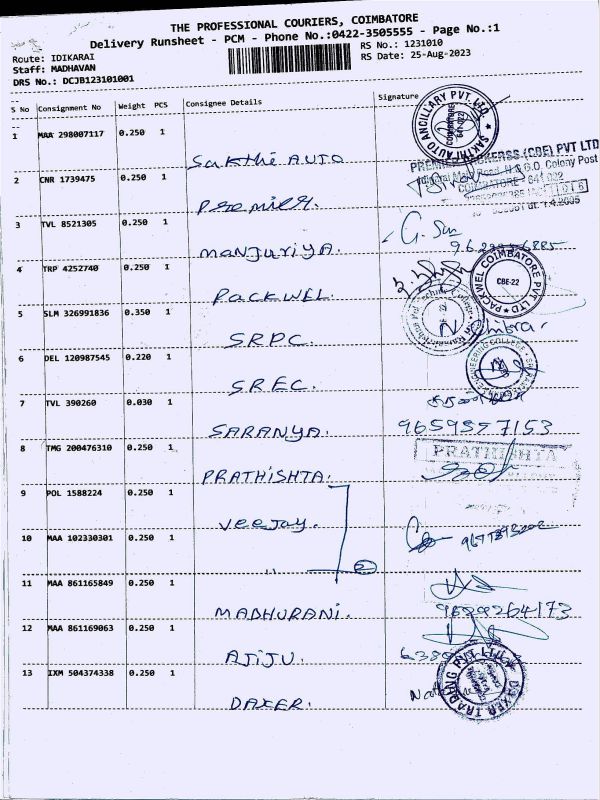 THE PROFESSIONAL COURIERS, COIMBATORE
Delivery Runsheet - PCM - Phone No.:0422-3505555 - Page No.:1
Route: IDIKARAI
RS No.: 1231010
Staff: MADHAVAN
RS Date: 25-Aug-2023
DRS No.: DCJB123101001
S No Consignment No Weight PCS Consignee Details Signature
1 MAA 298007117 0.250 1
Sakthi AUTO
SAKTHI AUTO ANCILLARY PVT. LTD.
COIMBATORE
2 CNR 1739475 0.250 1
Premier.
(CBE) PVT LTD
Colony Post
COIMBATORE - 641 022
3 TVL 8521305 0.250 1
MANJURIYA.
4 TRP 4252740 0.250 1
PACKWEL.
PACKWEL COIMBATORE PVT LTD
CBE-22
5 SLM 326991836 0.350 1
SRPC.
6 DEL 120987545 0.220 1
SREC.
ENGINEERING COLLEGE
7 TVL 390260 0.030 1
SARANYA.
9659597153
8 TMG 200476310 0.250 1
PRATHISHTA.
PRATHISHTA
9 POL 1588224 0.250 1
Veejay.
10 MAA 102330301 0.250 1
,, .
11 MAA 861165849 0.250 1
MADHURANI.
12 MAA 861169063 0.250 1
AJIJU.
13 IXM 504374338 0.250 1
DAXER.
DAXER TRADING PVT LTD